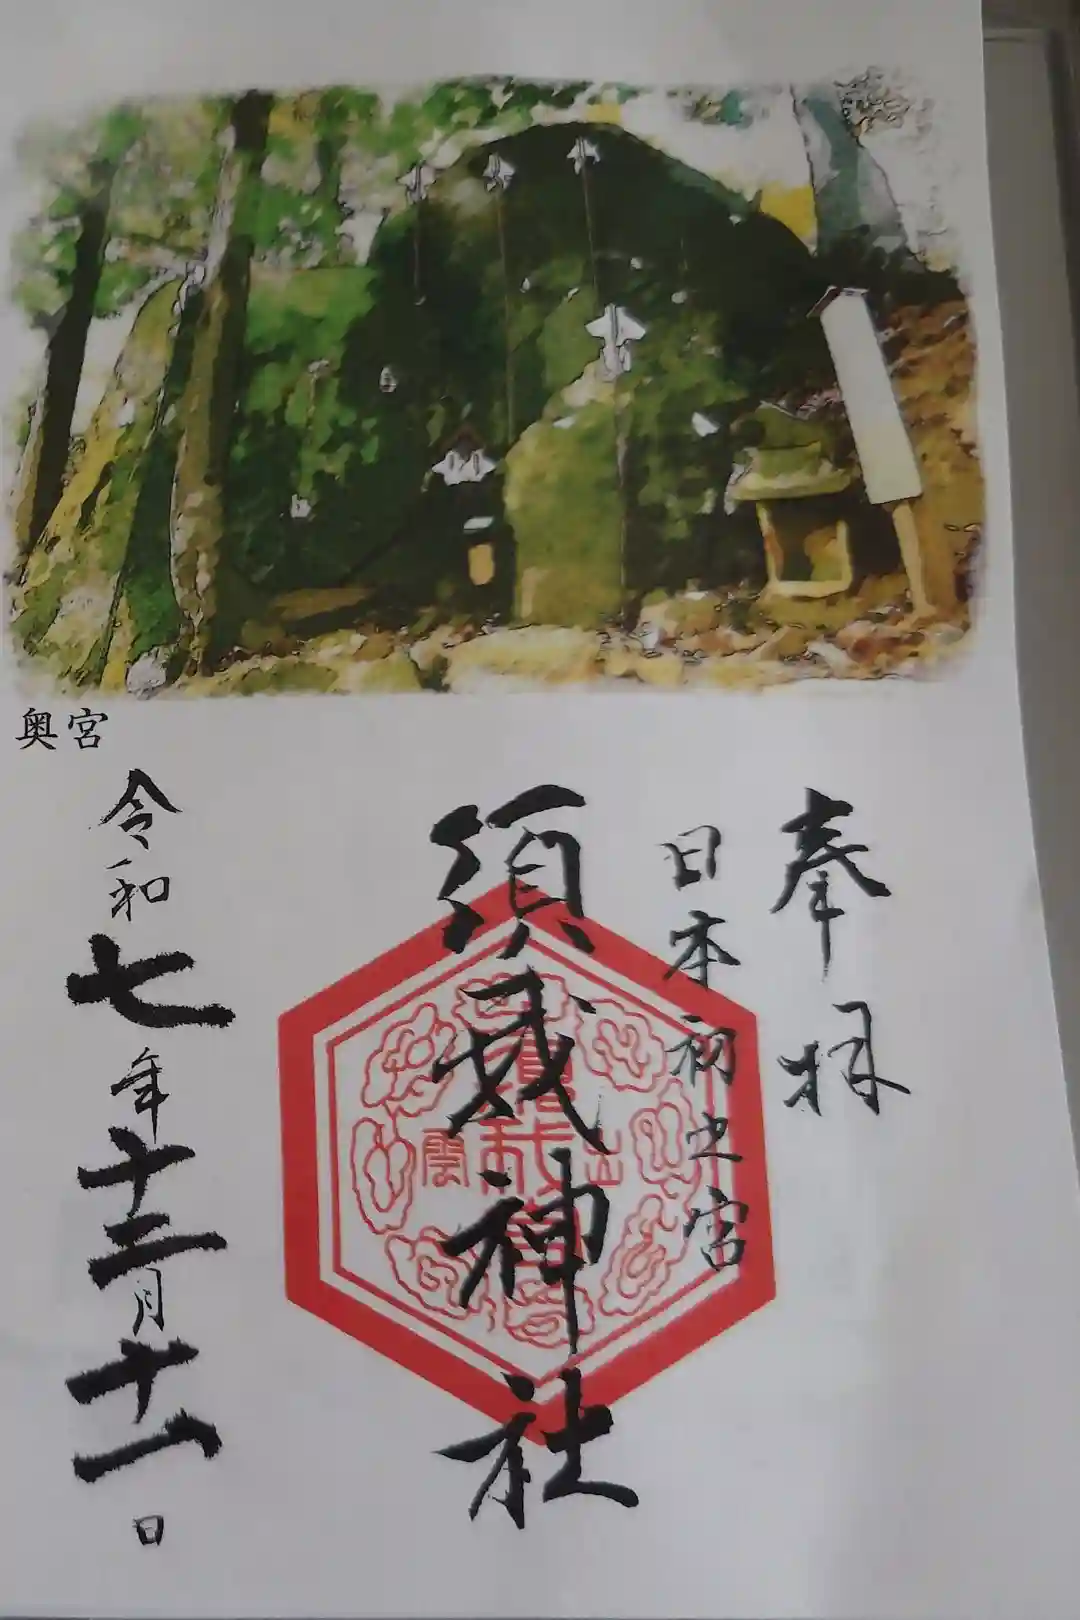 奥宮
奉拝
日本初之宮
須我神社
令和七年十二月十一日
出雲